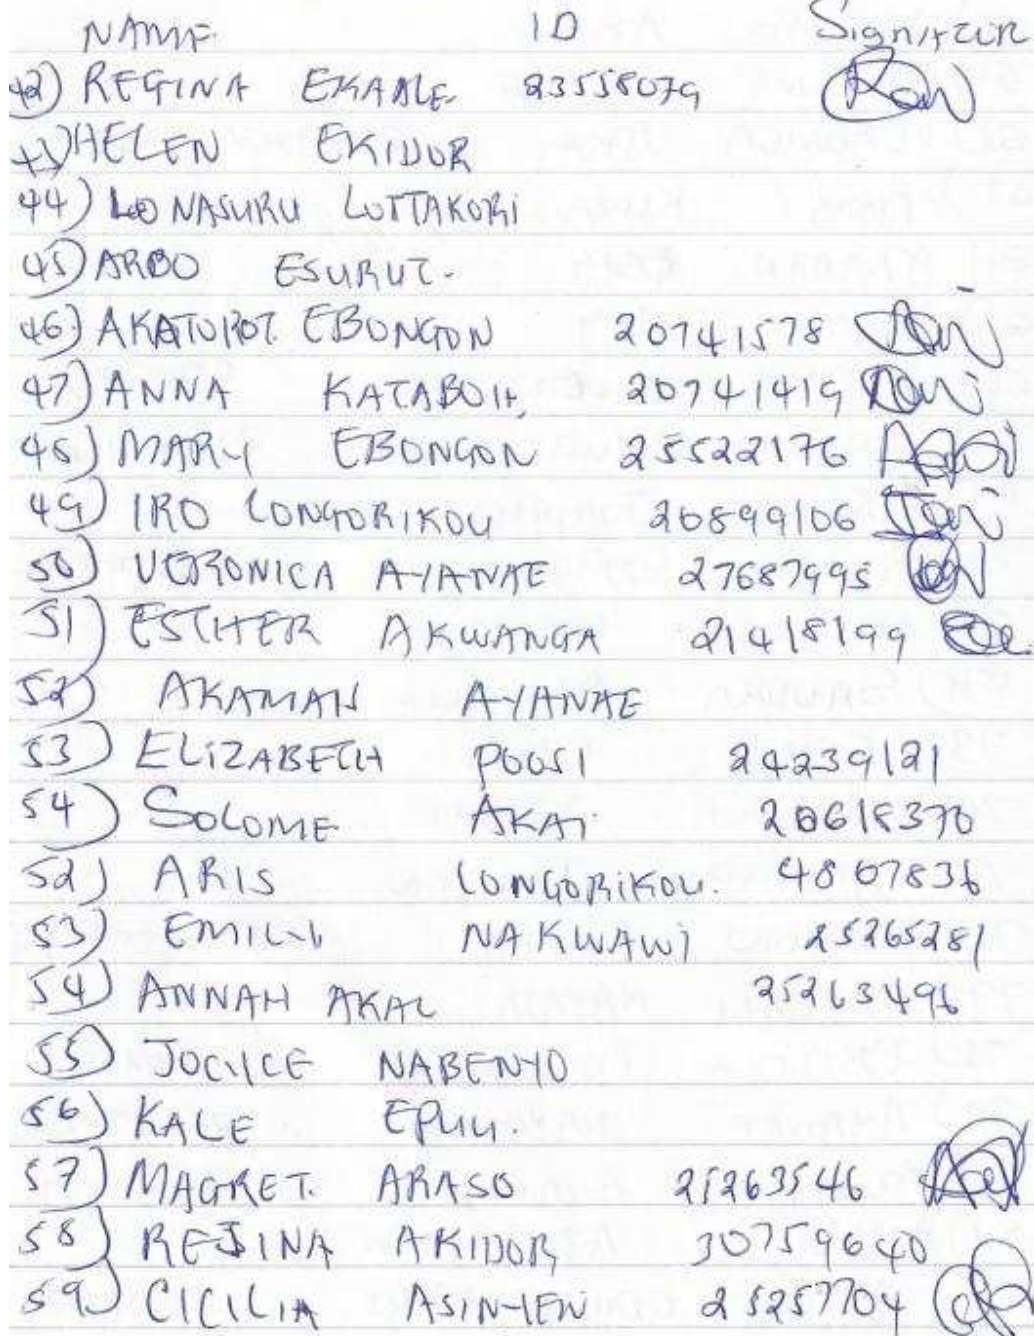 NAME ID Signature
42) REGINA EKAALE 23558079
43) HELEN EKIDOR
44) LONASURU LOTTAKORI
45) ARBO ESURUT.
46) AKATOROT EBONGON 20741578
47) ANNA KATABOH 20741419
48) MARY EBONGON 25522176
49) IRO LONGORIKOU 20899106
50) VERONICA AYANAE 27687995
51) ESTHER AKWANGA 21418199
52) AKAMAN AYANAE
53) ELIZABETH POOSI 24239121
54) SOLOME AKAI 20618370
52) ARIS LONGORIKOU. 4867836
53) EMILY NAKWAWI 25265281
54) ANNAH AKAL 25263496
55) JOCYCE NABENYO
56) KALE
57) MAGRET. ARASO 25263546
58) REJINA AKIDOR 30759640
59) CICILIA ASINYEN 25257704